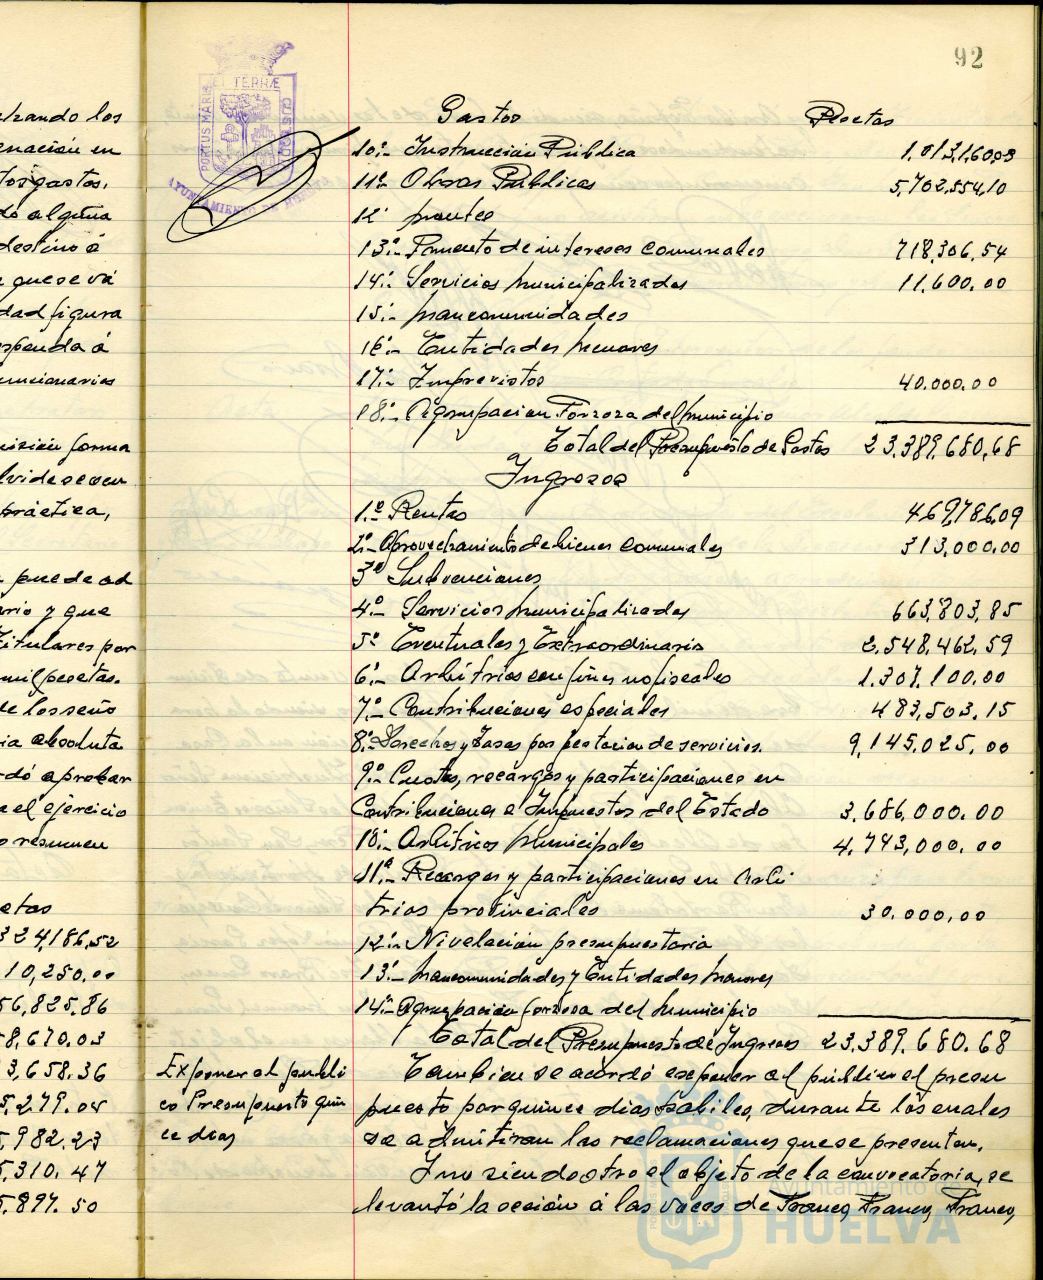 92
PORTUS MARIS ET TERRÆ CUSTODIA
AYUNTAMIENTO DE HUELVA
enación en
tos gastos.
do alguna
destino á
que se vá
dad figura
esponda á
uncionarios
forma
práctica,
puede ad
ario y que
Titulares por
mil pesetas.
de los seño
ia absoluta
rdó aprobar
a el ejercicio
resumen
etas
324,186,52
10,250.00
56,825.86
8,670.03
3,658.36
5,279.04
5,982.23
5,310.47
5.897.50
Exponer al publi
co Presupuesto quin
ce dias
Gastos Pesetas
10º.- Instrucción Pública
11º.- Obras Públicas 5,702,554,10
12º montes
13º.- Fomento de intereses comunales 718,306,54
14º.- Servicios municipalizados 11,600,00
15º.- mancomunidades
16º.- Entidades menores
17º.- Imprevistos 40.000.00
18º.- Agrupacion Forzosa del municipio
Total del Presupuesto de Gastos 23,389,680,68
Ingresos
1.º- Rentas 469,786,09
2º.- Aprovechamiento de bienes comunales 313,000,00
3º Subvenciones
4º.- Servicios municipalizados 663,803,85
5º Eventuales y Extraordinario 2.548,462,59
6º.- Arbitrios con fines no fiscales 1.307,100.00
7º.- Contribuciones especiales 483,503.15
8º.- Derechos y Tasas por pestacion de servicios. 9,145,025,00
9º.- Cuotas, recargos y participaciones en
Contribuciones e Impuestos del Estado 3,686,000.00
10º.- Arbitrios Municipales 4,743,000.00
11º Recargos y participaciones en Arbi
trios provinciales 30.000,00
12º.- Nivelación presupuestaria
13º.- Mancomunidades y Entidades Menores
14º.- Agrupación forzosa del Municipio
Total del Presupuesto de Ingresos 23,389,680.68
Tambien se acordó exponer al público el presu
puesto por quince dias habiles, durante los cuales
se admitiran las reclamaciones que se presenten.
Y no siendo otro el objeto de la convocatoria, se
levantó la seción á las voces de Franco, Franco, Franco,
Ayuntamiento de
HUELVA